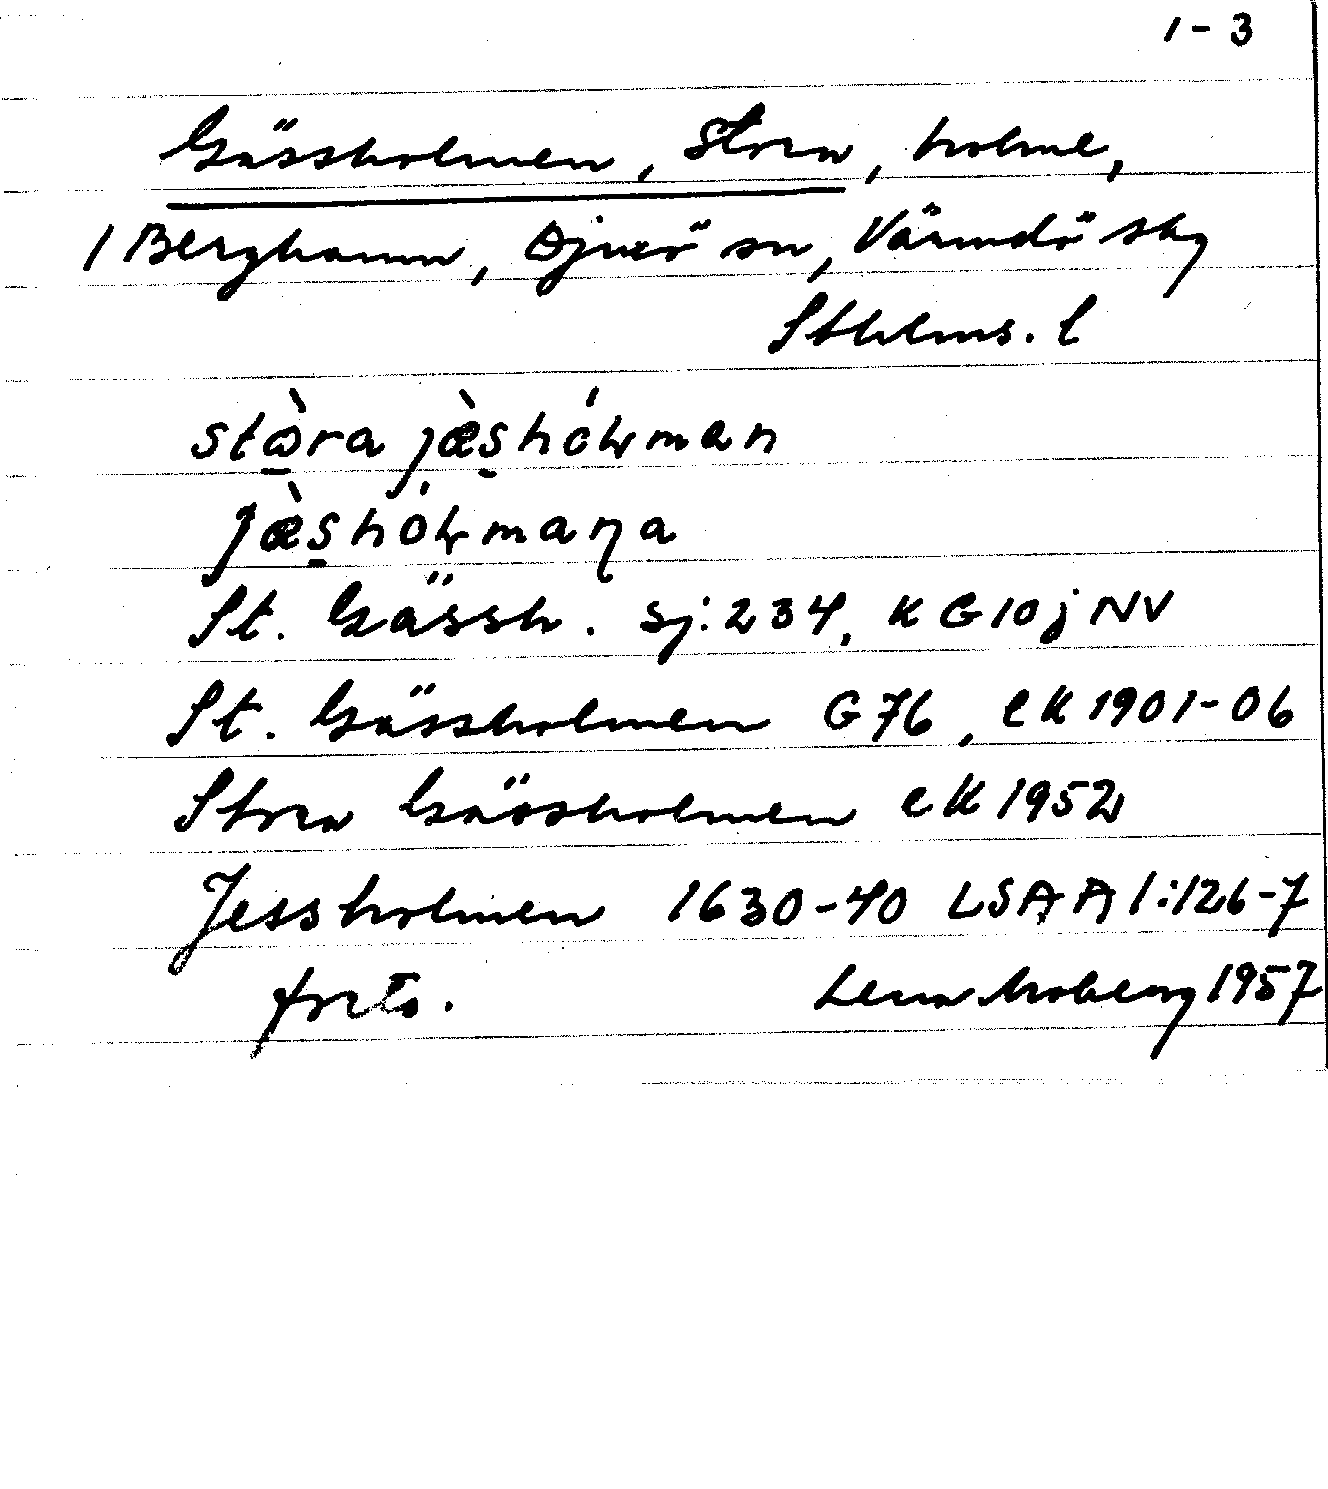 1-3
Gässholmen, Stora, holme,
/ Berghamn, Djurö sn, Värmdö sky
Sthlms. l
stɷ̀ra jæ̀shóɫman
jæ̀shóɫmaɳa
St. Gässh. Sj:234, K G10j NV
St. Gässholmen G76, eK 1901-06
Stora Gässholmen eK 1952
Jessholmen 1630-40 LSA A1:126-7
forts. Lena Moberg 1957